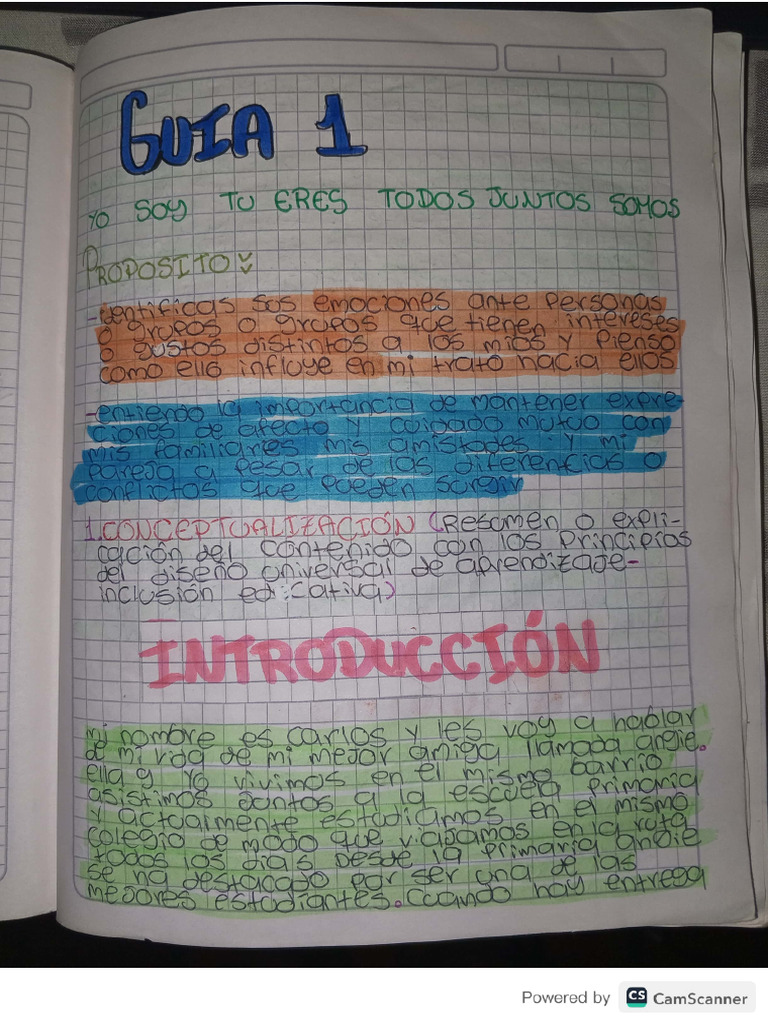 GUIA 1
YO SOY TU ERES TODOS JUNTOS SOMOS
PROPOSITO
-identificas sos emociones ante personas
o grupos o grupos que tienen intereses
o gustos distintos a los mios y pienso
como ello influye en mi trato hacia ellos
-entiendo la importancia de mantener expre-
ciones de afecto y cuidado mutuo con
mis familiares mis amistades y mi
pareja a pesar de las diferencias o
conflictos que pueden surgir
1.CONCEPTUALIZACIÓN (Resumen o expli-
cación del contenido con los principios
del diseño universal de aprendizaje-
inclusión educativa)
INTRODUCCIÓN
mi nombre es carlos y les voy a hablar
de mi vida de mi mejor amiga llamada angie.
ella y yo vivimos en el mismo barrio
asistimos juntos a la escuela primaria
y actualmente estudiamos en el mismo
colegio de modo que viajamos en la ruta
todos los dias Desde la primaria angie
se ha destacado por ser una de las
mejores estudiantes. Cuando hay entrega
Powered by CS CamScanner